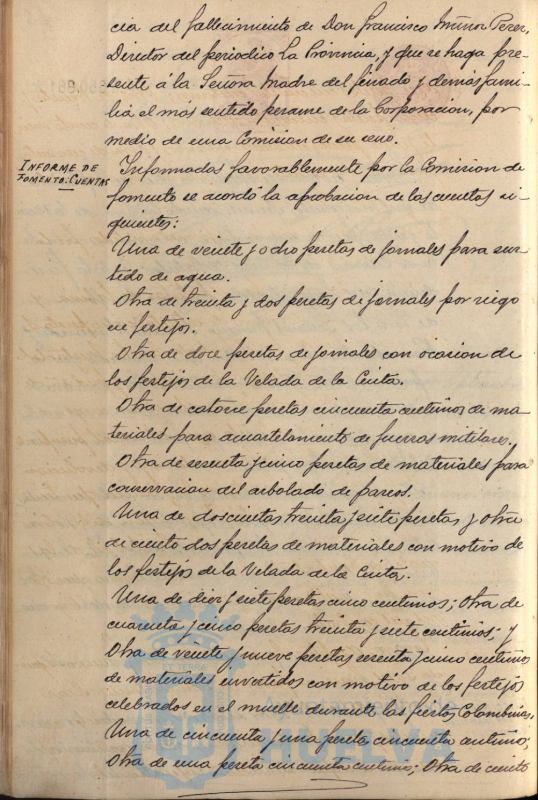 cia del fallecimiento de Don Francisco Muñoz Perez,
Director del periodico La Provincia, y que se haga pre-
sente á la Señora Madre del finado y demás fami-
lia el más sentido pesame de la Corporacion, por
medio de una Comision de su seno.
INFORME DE
FOMENTO: CUENTAS
Informadas favorablemente por la Comision de
fomento se acordó la aprobacion de las cuentas si-
guientes:
Una de veinte y ocho pesetas de jornales para sur-
tido de agua.
Otra de treinta y dos pesetas de jornales por riego
en festejos.
Otra de doce pesetas de jornales con ocasion de
los festejos de la Velada de la Cinta.
Otra de catorce pesetas cincuenta centimos de ma-
teriales para acuartelamiento de fuerzas militares.
Otra de sesenta y cinco pesetas de materiales para
conservacion del arbolado de paseos.
Una de doscientas treinta y siete pesetas y otra
de ciento dos pesetas de materiales con motivo de
los festejos de la Velada de la Cinta.
Una de diez y siete pesetas cinco centimos; Otra de
cuarenta y cinco pesetas treinta y siete centimos; y
Otra de veinte y nueve pesetas sesenta y cinco centimos
de materiales invertidos con motivo de los festejos
celebrados en el muelle durante las fiestas Colombinas.
Una de cincuenta y una peseta cincuenta centimos;
Otra de una peseta cincuenta centimos; Otra de ciento